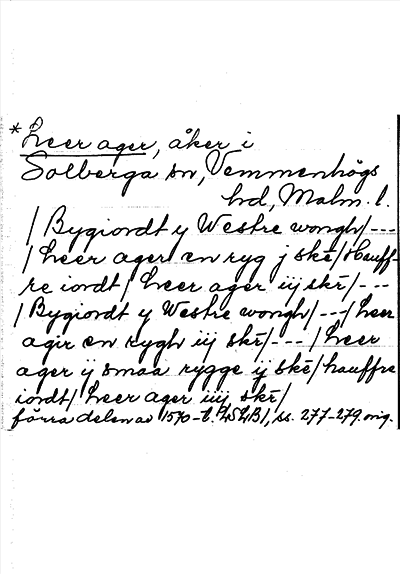 *Leer ager, åker i
Solberga sn, Vemmenhögs
hd, Malm. l.
/ Bygiordt y Westre wongh/---
/ Leer ager en ryg j skē/Hauff-
re iordt/ Leer ager iij skē/---
/ Bygiordt y Westre wongh/---/Leer
agir en rygh iij skē/---/Leer
ager ij smaa rygge ij skē/hauffre
iordt/ Leer ager iiij skē/
förra delen av 1570-t. ss. 277-279. orig.